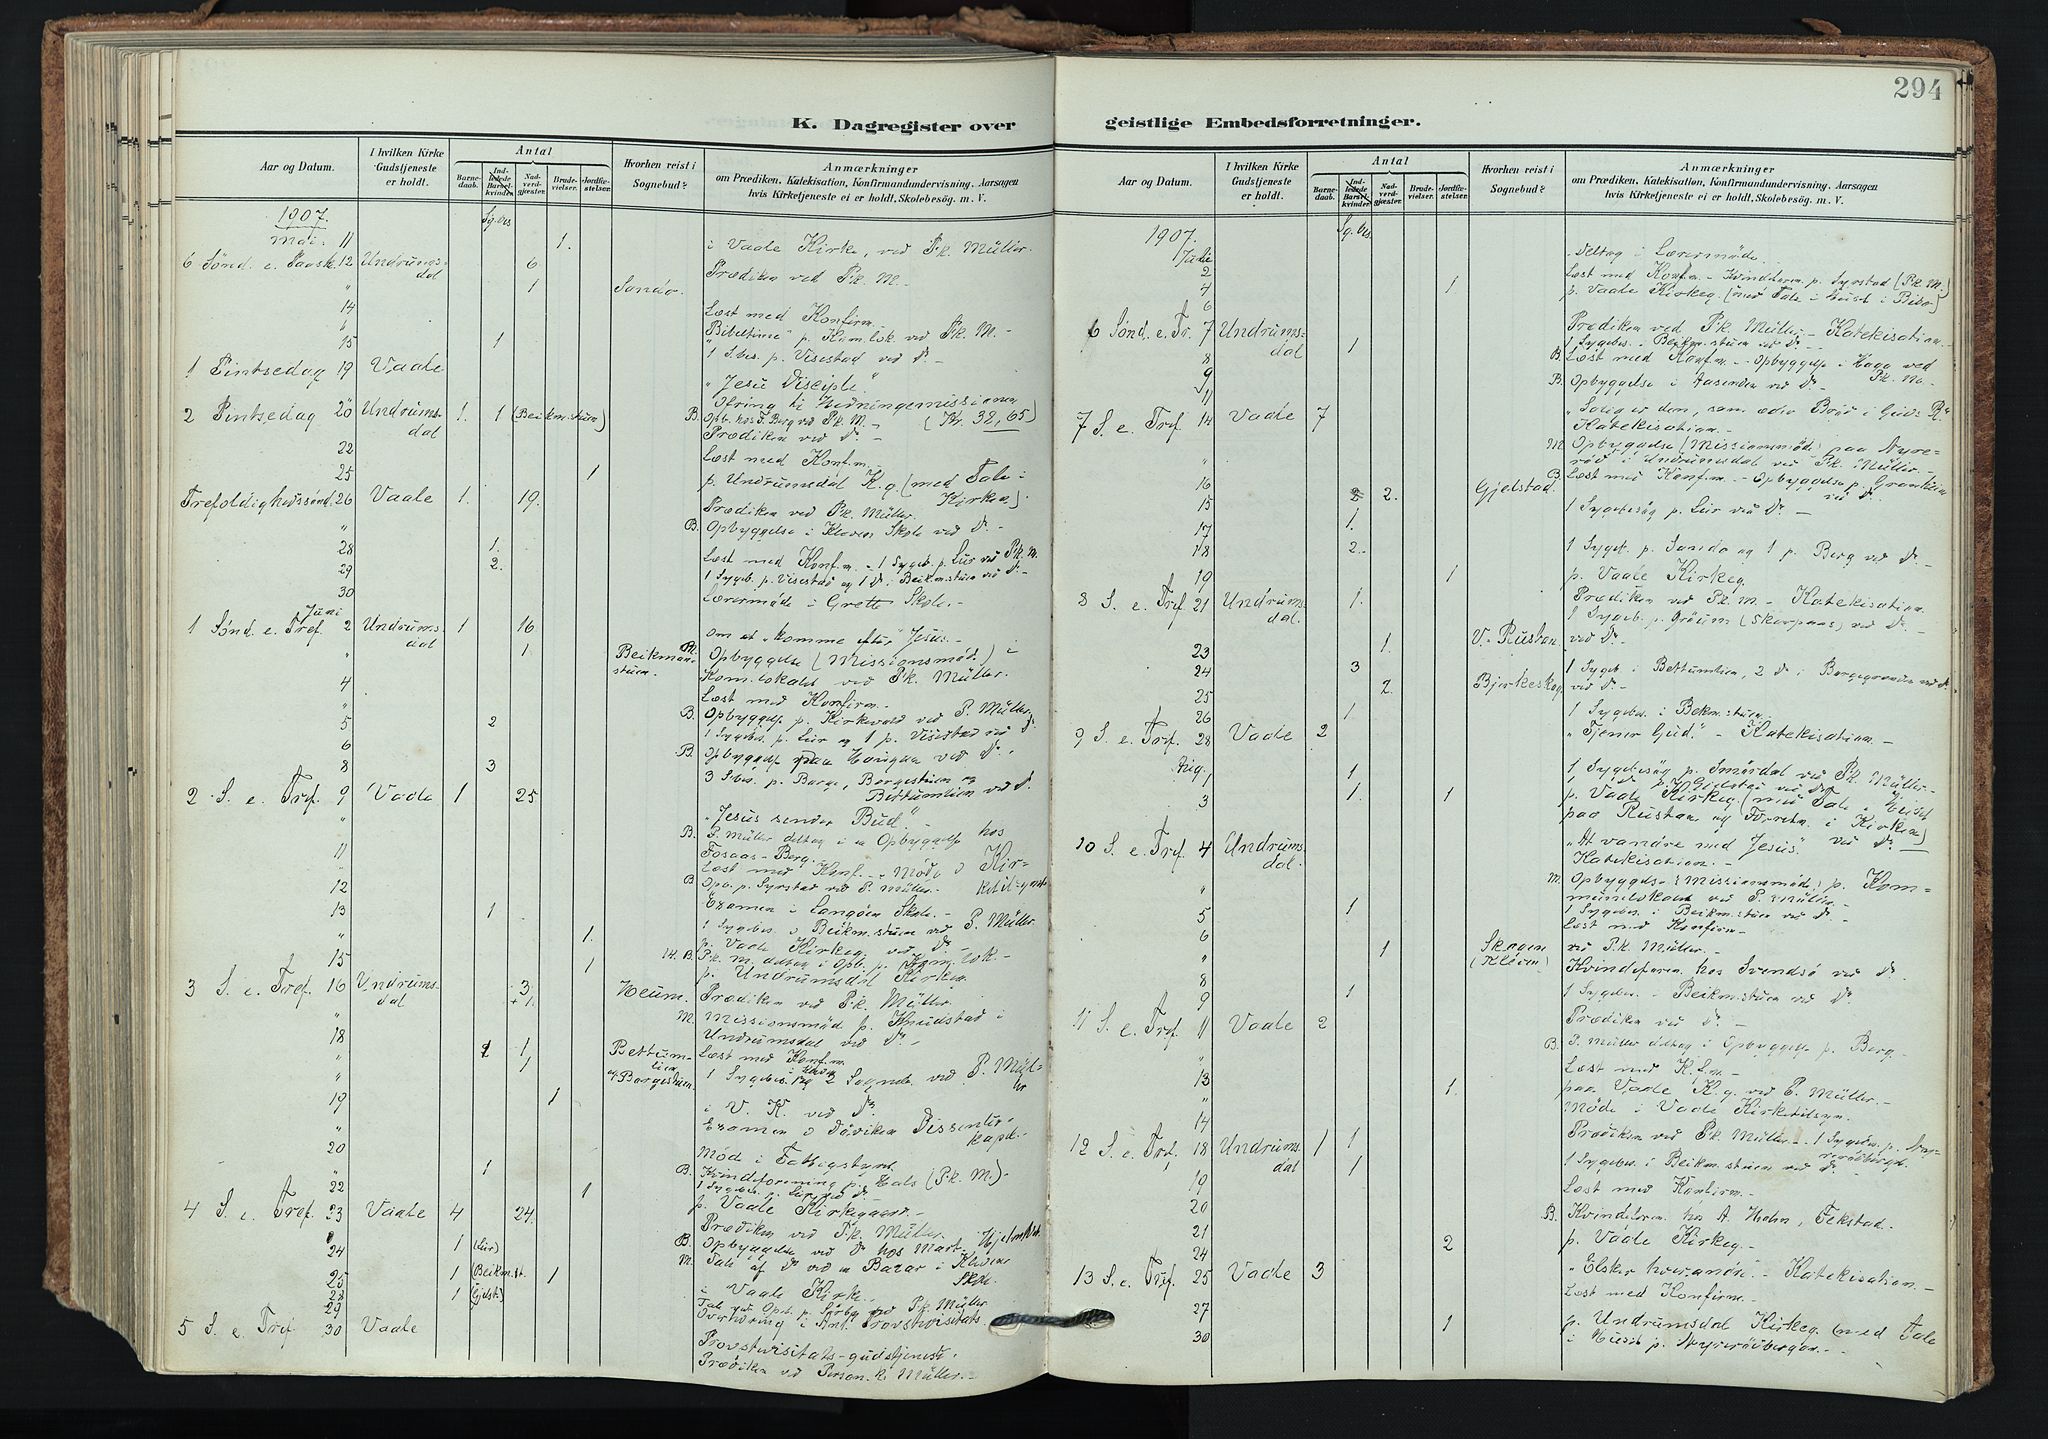 294
K. Dagregister over geistlige Embedsforretninger.
Aar og Datum.
I hvilken Kirke Gudstjeneste er holdt.
Antal
Barnedaab.
Indledede Barselkvinder.
Nadverdgjæster.
Brudevielser.
Jordfæstelser.
Hvorhen reist i Sognebud?
Anmærkninger
om Prædiken, Katekisation, Konfirmandundervisning, Aarsagen
hvis Kirketjeneste ei er holdt, Skolebesøg. m. V.
1907. Sg. bes.
Mai. 11 1. i Vaale Kirke, ved P.k. Müller.
6 Sønd. e. Paask. 12 Undrumsdal 6 Prædiken ved P.k. M.
" 1 Sandø.
14 Læst med Konfirm.
15 1 1 S.bes. p. Visestad ved Do —
1 Pintsedag 19 Vaale "Jesu Disciple"
2 Pintsedag 20 Undrumsdal 1. 1 (Beikm.stuen) B. Opb. hos F. Berg ved P.k. M. — (Kr. 32,65)
Prædiken ved Do —
22 Læst med Konf.m.
25 1 p. Undrumsdal K.g. (med Tale i Kirken).
Trefoldighedssønd. 26 Vaale 1. 19. Prædiken ved P.k. Müller.
" B. Opbyggelse i Klevens Skole ved Do —
28 1. Læst med Konf.m. — 1 Sygeb. p. Lur ved P.k. M.
29 2. 1 Sygeb. p. Visestad og 1 Do i Beikm.stuen ved Do —
30 Lærermøde i Grette Skole. —
1 Sønd. e. Tref. Juni 2 Undrumsdal 1 16 Om at "komme efter" Jesus. —
" 1. Beikmanstuen. M. Opbyggelse (Missionsmøde) i
Kom.lokalet ved P.k. Müller.
4 Læst med Konfirm. —
" B. Opbyggelse p. Kirkevold ved P. Müller.
5 2 1 Sygebes. p. Lur og 1 p. Visestad ved Do
6 B. Opbyggelse paa Honigaa ved Do.
8 3 3 S.bes. p. Barge, Bargestuen og
Bettumlien ved Do.
2 S. e. Tref. 9 Vaale 1 25 "Jesus sender Bud" —
" B. P. Müller deltog i en Opbyggelse hos
Fosaas-Berg.
11 Læst med Konf. — Møde i Kirketilsynet
" B. Opb. p. Syrstad ved P. Müller. —
12 Examen i Langøen Skole. —
13 1 1 Sygebes. i Beikm.stuen ved P. Müller
" 1. p. Vaale Kirkeg. ved Do —
15 1 14. B. P.k. M. deltog i Opb. p. Kom. lok. —
p. Undrumsdal Kirkeg.
3 S. e. Tref. 16 Undrumsdal 3 + 1 Heum. Prædiken ved P.k. Müller.
" M. Missionsmøde p. Knudstad i
Undrumsdal ved Do —
18 Læst med Konf.m.
" 1 1 Bettumlien og Bargestuen 1 Sygebes. i Kleven og 2 Sogneb. ved P. Müller
19 1 i V. K. ved Do.
" Examen i Døviken Dissenterkapel. —
20 Møde i Fattigstyret.
" 1 B. Kvindeforening p. Hals (P.k. M.) —
1 Sygebes. p. Lur ved Do —
22 1 p. Vaale Kirkegaard. —
4 S. e. Tref. 23 Vaale 4 24. Prædiken ved P.k. Müller.
B. Opbyggelse ved Do hos Mart. Hjelmtvet.
24 1 (Lur) M. Tale af Do ved en Bazar i Klevens Skole
25 1 (Beikm.st. 1 i Vaale Kirke.
28 1 (Gjelst.) Tale ved Opb. p. Sørby ved P.k. Müller
29 Overhøring i Anl. Provstivisitats.
5 S. e. Tref 30 Vaale Provstevisitats-gudstjeneste.
Prædiken ved Person. k. Müller. —
Aar og Datum.
I hvilken Kirke Gudstjeneste er holdt.
Antal
Barnedaab.
Indledede Barselkvinder.
Nadverdgjæster.
Brudevielser.
Jordfæstelser.
Hvorhen reist i Sognebud?
Anmærkninger
om Prædiken, Katekisation, Konfirmandundervisning, Aarsagen
hvis Kirketjeneste ei er holdt, Skolebesøg. m. V.
1907. Sg. bes.
Juli Deltog i Lærermøde.
2 Læst med Konf.m. — Kvindeforen. p. Syrstad (P.k. M.)
4 1 p. Vaale Kirkeg. (med Tale i Huset i Bibo)
6
6 Sønd. e. Tr. 7 Undrumsdal Prædiken ved P.k. Müller — Katekisation. —
8 1 1 Sygebes. — Beikm.stuen ved Do —
9 B. Læst med Konf.m. — Opbyggelse i Haga ved P.k. M. —
11 B. Opbyggelse i Aasenden ved Do —
7 S. e. Tref. 14 Vaale 7 "Salig er den, som æder Brød i Guds R."
Katekisation. —
" M. Opbyggelse (Missionsmøde) paa Nyrerød i Undrumsdal ved P.k. Müller. —
16 B. Læst med Konf.m. — Opbyggelse p. Granheim ved Do —
15 2 2. Gjelstad. 1 Sygebesøg p. Lur ved Do —
17 1.
18 2. 1 Sygeb. p. Sandø og 1 p. Berg ved Do
19 1 p. Vaale Kirkeg.
8 S. e. Tref 21 Undrumsdal. 1. Prædiken ved P.k. M. — Katekisation.
1 Sygeb. p. Gråum (Skorpaas) ved Do —
23 1. V. Rustan ved Do —
24 3 1 Sygeb. i Bettumlien, 2 Do i Bargegranden ved Do
25 2. Bjerkeskog ved Do —
26 1 1 Sygebes. i Bekm.stuen.
9 S. e. Tref. 28 Vaale 2 "Tjener Gud." — Katekisation. —
Aug. 1 1 1 Sygebesøg p. Smørdal ved P.k. Müller. —
1 Do p. Gjelstad ved Do
3 1. 1 p. Vaale Kirkeg. (med Tale i Huset
paa Rustan og Forretn. i Kirken)
10 S. e. Tref. 4 Undrumsdal. "At vandre med Jesus" ved Do —
Katekisation. —
" M. Opbyggelse (Missionsmøde) p. Kommunelokalet ved P. Müller. —
5 1 1 Sygebes. i Beikm.stuen ved Do —
6 Læst med Konfirm. —
" 1 Skogen (Kleven) ved P.k. Müller. —
8 Kvindeforen. hos Svendsø ved Do
9 1 1 Sygebes. — Beikm.stuen ved Do
11 S. e. Tref. 11 Vaale 2 Prædiken ved Do —
" B. P. Müller deltog i Opbyggelse p. Berg. —
13 Læst med K.f.m. —
" 1. paa Vaale K.g. ved P. Müller. —
14 Møde i Vaale Kirketilsyn.
12 S. e. Tref. 18 Undrumsdal 1 1 Prædiken ved P.k. Müller. — 1 Sygebes. p. Nyrerødbergen.
1 1 Sygebes. i Beikm.stuen ved Do —
19 Læst med Konfirm. —
20 B. Kvindeforen. hos A. Holm, Fekstad. —
21 2 p. Vaale Kirkeg. —
24
13 S. e. Tref. 25 Vaale 3 "Elsker hverandre". — Katekisation. —
27 Læst med Konfirm. —
30 1 p. Undrumsdal Kirkeg. (med Tale
i Huset p. Nyrerødbergan. —